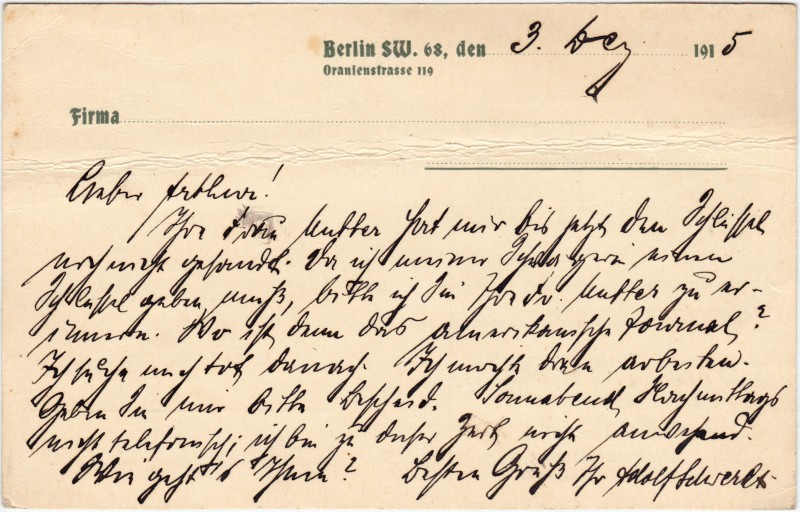 Berlin SW. 68, den 3. Dez 1915
Oranienstrasse 119
Firma
Lieber Arthur!
Ihre Frau Mutter hat mir bis jetzt den Schlüssel
noch nicht gesandt. Da ich meiner Schwägerin einen
Schlüssel geben muß, bitte ich Sie Ihre Fr. Mutter zu er-
innern. Wo ist denn das amerikanische Journal?
Ich suche mich tot danach. Ich möchte dran arbeiten.
Geben Sie mir bitte Bescheid. Sonnabend Nachmittags
nicht telefonisch; ich bin zu dieser Zeit nicht anwesend.
Wie geht's Ihnen? Besten Gruß Ihr Adolf